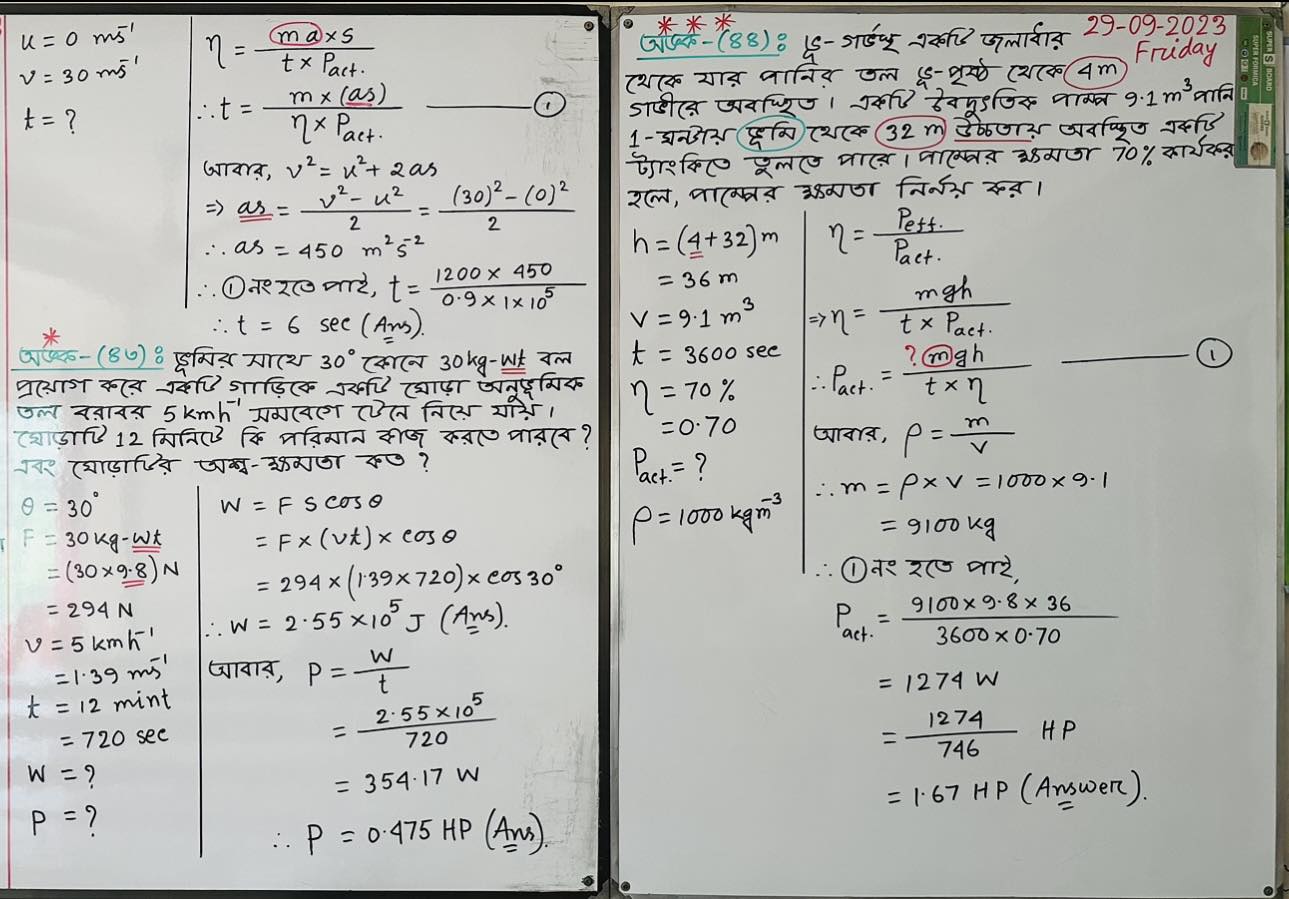 u = 0 ms⁻¹
v = 30 ms⁻¹
t = ?
η = (ma) × s / t × Pact.
∴ t = m × (as) / η × Pact. ——— ①
আবার, v² = u² + 2as
⇒ as = v² - u² / 2 = (30)² - (0)² / 2
∴ as = 450 m²s⁻²
∴ ① নং হতে পাই, t = 1200 × 450 / 0.9 × 1 × 10⁵
∴ t = 6 sec (Ans).
*
ভূমির সাথে 30° কোনে 30 kg-wt বল
প্রয়োগ করে একটি গাড়িকে একটি ঘোড়া অনুভূমিক
তল বরাবর 5 kmh⁻¹ সমবেগে টেনে নিয়ে যায়।
ঘোড়াটি 12 মিনিটে কি পরিমান কাজ করতে পারবে?
এবং ঘোড়াটির অশ্ব-ক্ষমতা কত?
θ = 30°
F = 30 kg-wt
= (30 × 9.8) N
= 294 N
v = 5 kmh⁻¹
= 1.39 ms⁻¹
t = 12 mint
= 720 sec
W = ?
P = ?
W = F S cosθ
= F × (vt) × cosθ
= 294 × (1.39 × 720) × cos 30°
∴ W = 2.55 × 10⁵ J (Ans).
আবার, P = W / t
= 2.55 × 10⁵ / 720
= 354.17 W
∴ P = 0.475 HP (Ans).
* * *
29-09-2023
Friday
ভূ-গর্ভস্থ একটি জলাধার
থেকে যার পানির তল ভূ-পৃষ্ঠ থেকে 4 m
গভীরে অবস্থিত। একটি বৈদ্যুতিক পাম্প 9.1 m³ পানি
1-ঘন্টায় ভূমি থেকে 32 m উচ্চতায় অবস্থিত একটি
ট্যাংকিতে তুলতে পারে। পাম্পের ক্ষমতা 70% কার্যকর
হলে, পাম্পের ক্ষমতা নির্নয় কর।
h = (4 + 32) m
= 36 m
V = 9.1 m³
t = 3600 sec
η = 70 %
= 0.70
Pact. = ?
ρ = 1000 kgm⁻³
η = Peff. / Pact.
⇒ η = mgh / t × Pact.
∴ Pact. = ? mgh / t × η ——— ①
আবার, ρ = m / V
∴ m = ρ × V = 1000 × 9.1
= 9100 kg
∴ ① নং হতে পাই,
Pact. = 9100 × 9.8 × 36 / 3600 × 0.70
= 1274 W
= 1274 / 746 HP
= 1.67 HP (Answer).
SUPER S BOARD
SUPER FORMICA